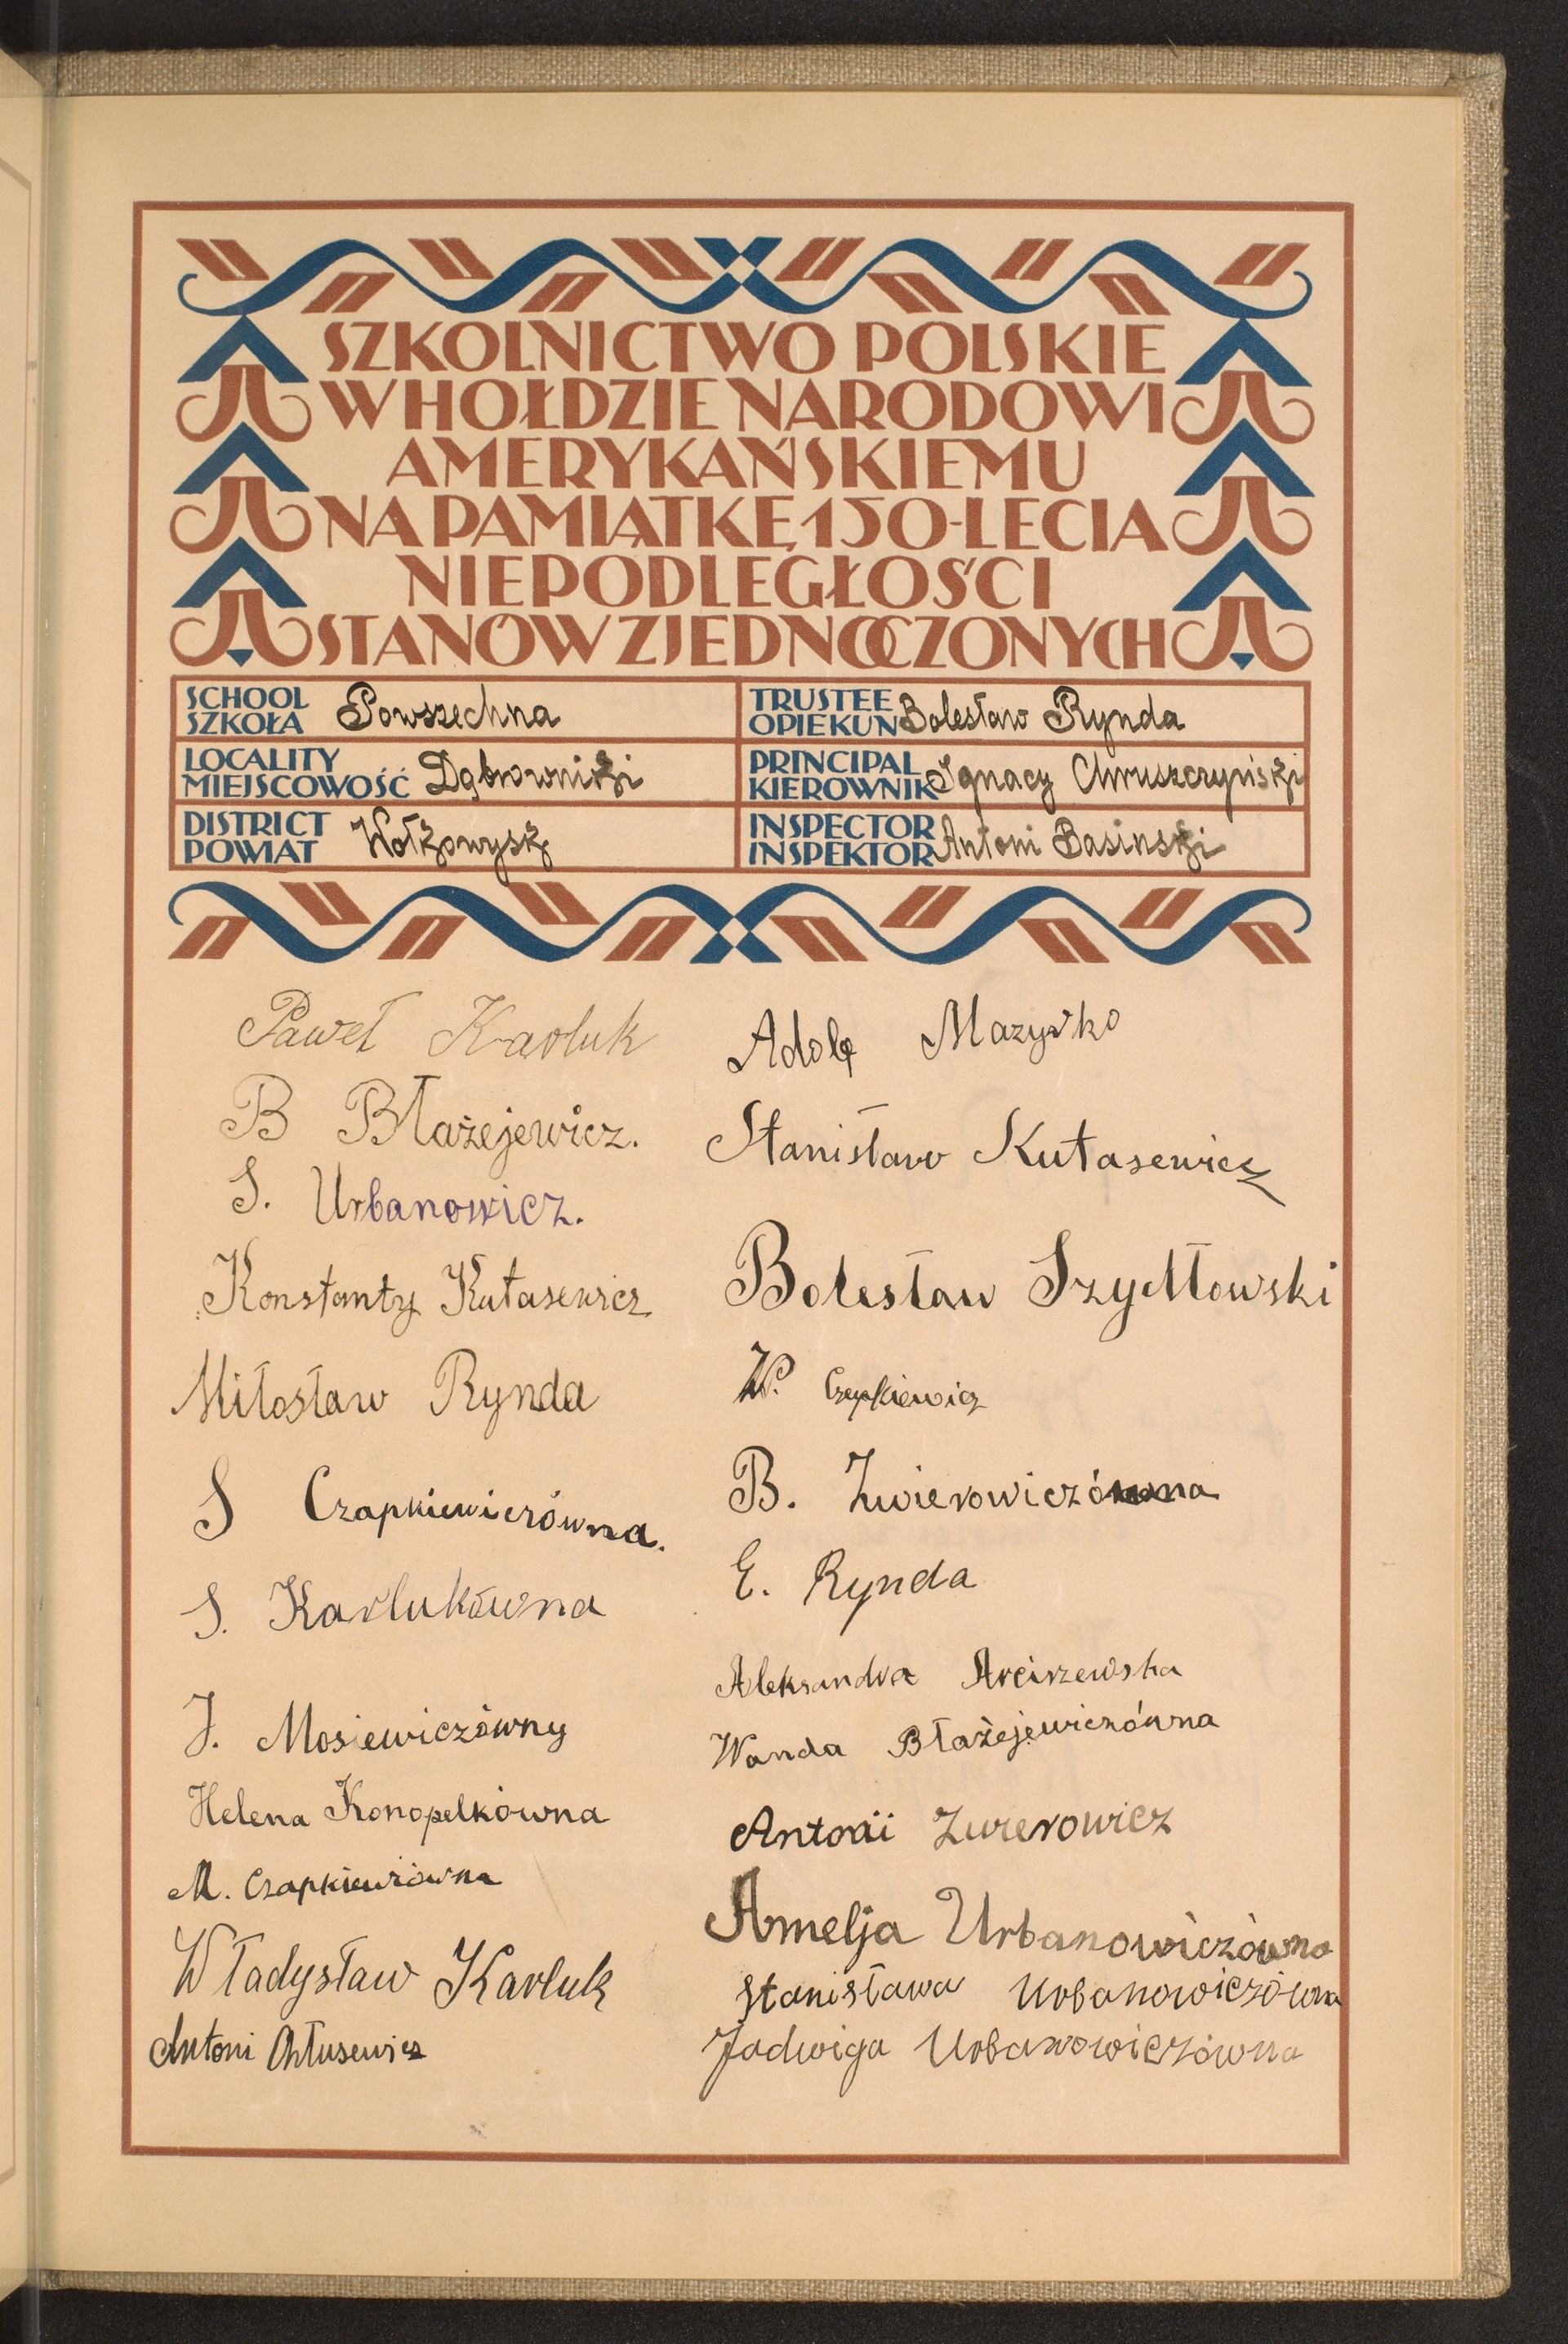 SZKOLNICTWO POLSKIE
W HOŁDZIE NARODOWI
AMERYKAŃSKIEMU
NA PAMIĄTKĘ 150-LECIA
NIEPODLEGŁOŚCI
STANÓW ZJEDNOCZONYCH
SCHOOL
SZKOŁA Powszechna
TRUSTEE
OPIEKUN Bolesław Rynda
LOCALITY
MIEJSCOWOŚĆ Dąbrowniki
PRINCIPAL
KIEROWNIK Ignacy Chruszczyński
DISTRICT
POWIAT Wołkowysk
INSPECTOR
INSPEKTOR Antoni Basiński
Paweł Karluk
B Błażejewicz.
S. Urbanowicz.
Konstanty Kułasewicz
Miłosław Rynda
S Czapkiewiczówna.
S. Karlukówna
J. Mosiewiczówny
Helena Konopelkówna
M. Czapkiewiówna
Władysław Karluk
Antoni
Adolf Mazurko
Stanisław Kułasewicz
Bolesław Szydłowski
W. Czapkiewicz
B. Zwierowiczówna
E. Rynda
Aleksandra Arciszewska
Wanda Błażejewiczówna
Antoni Zwierowicz
Amelja Urbanowiczówna
Stanisława Urbanowiczówna
Jadwiga Urbanowiczówna